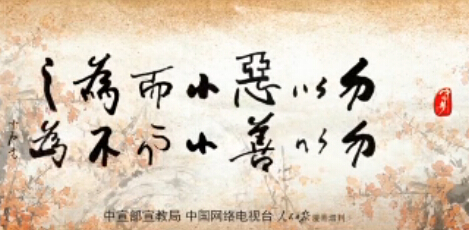 勿以惡小而為之
勿以善小而不為
中宣部宣教局 中国网络电视台 人民日报